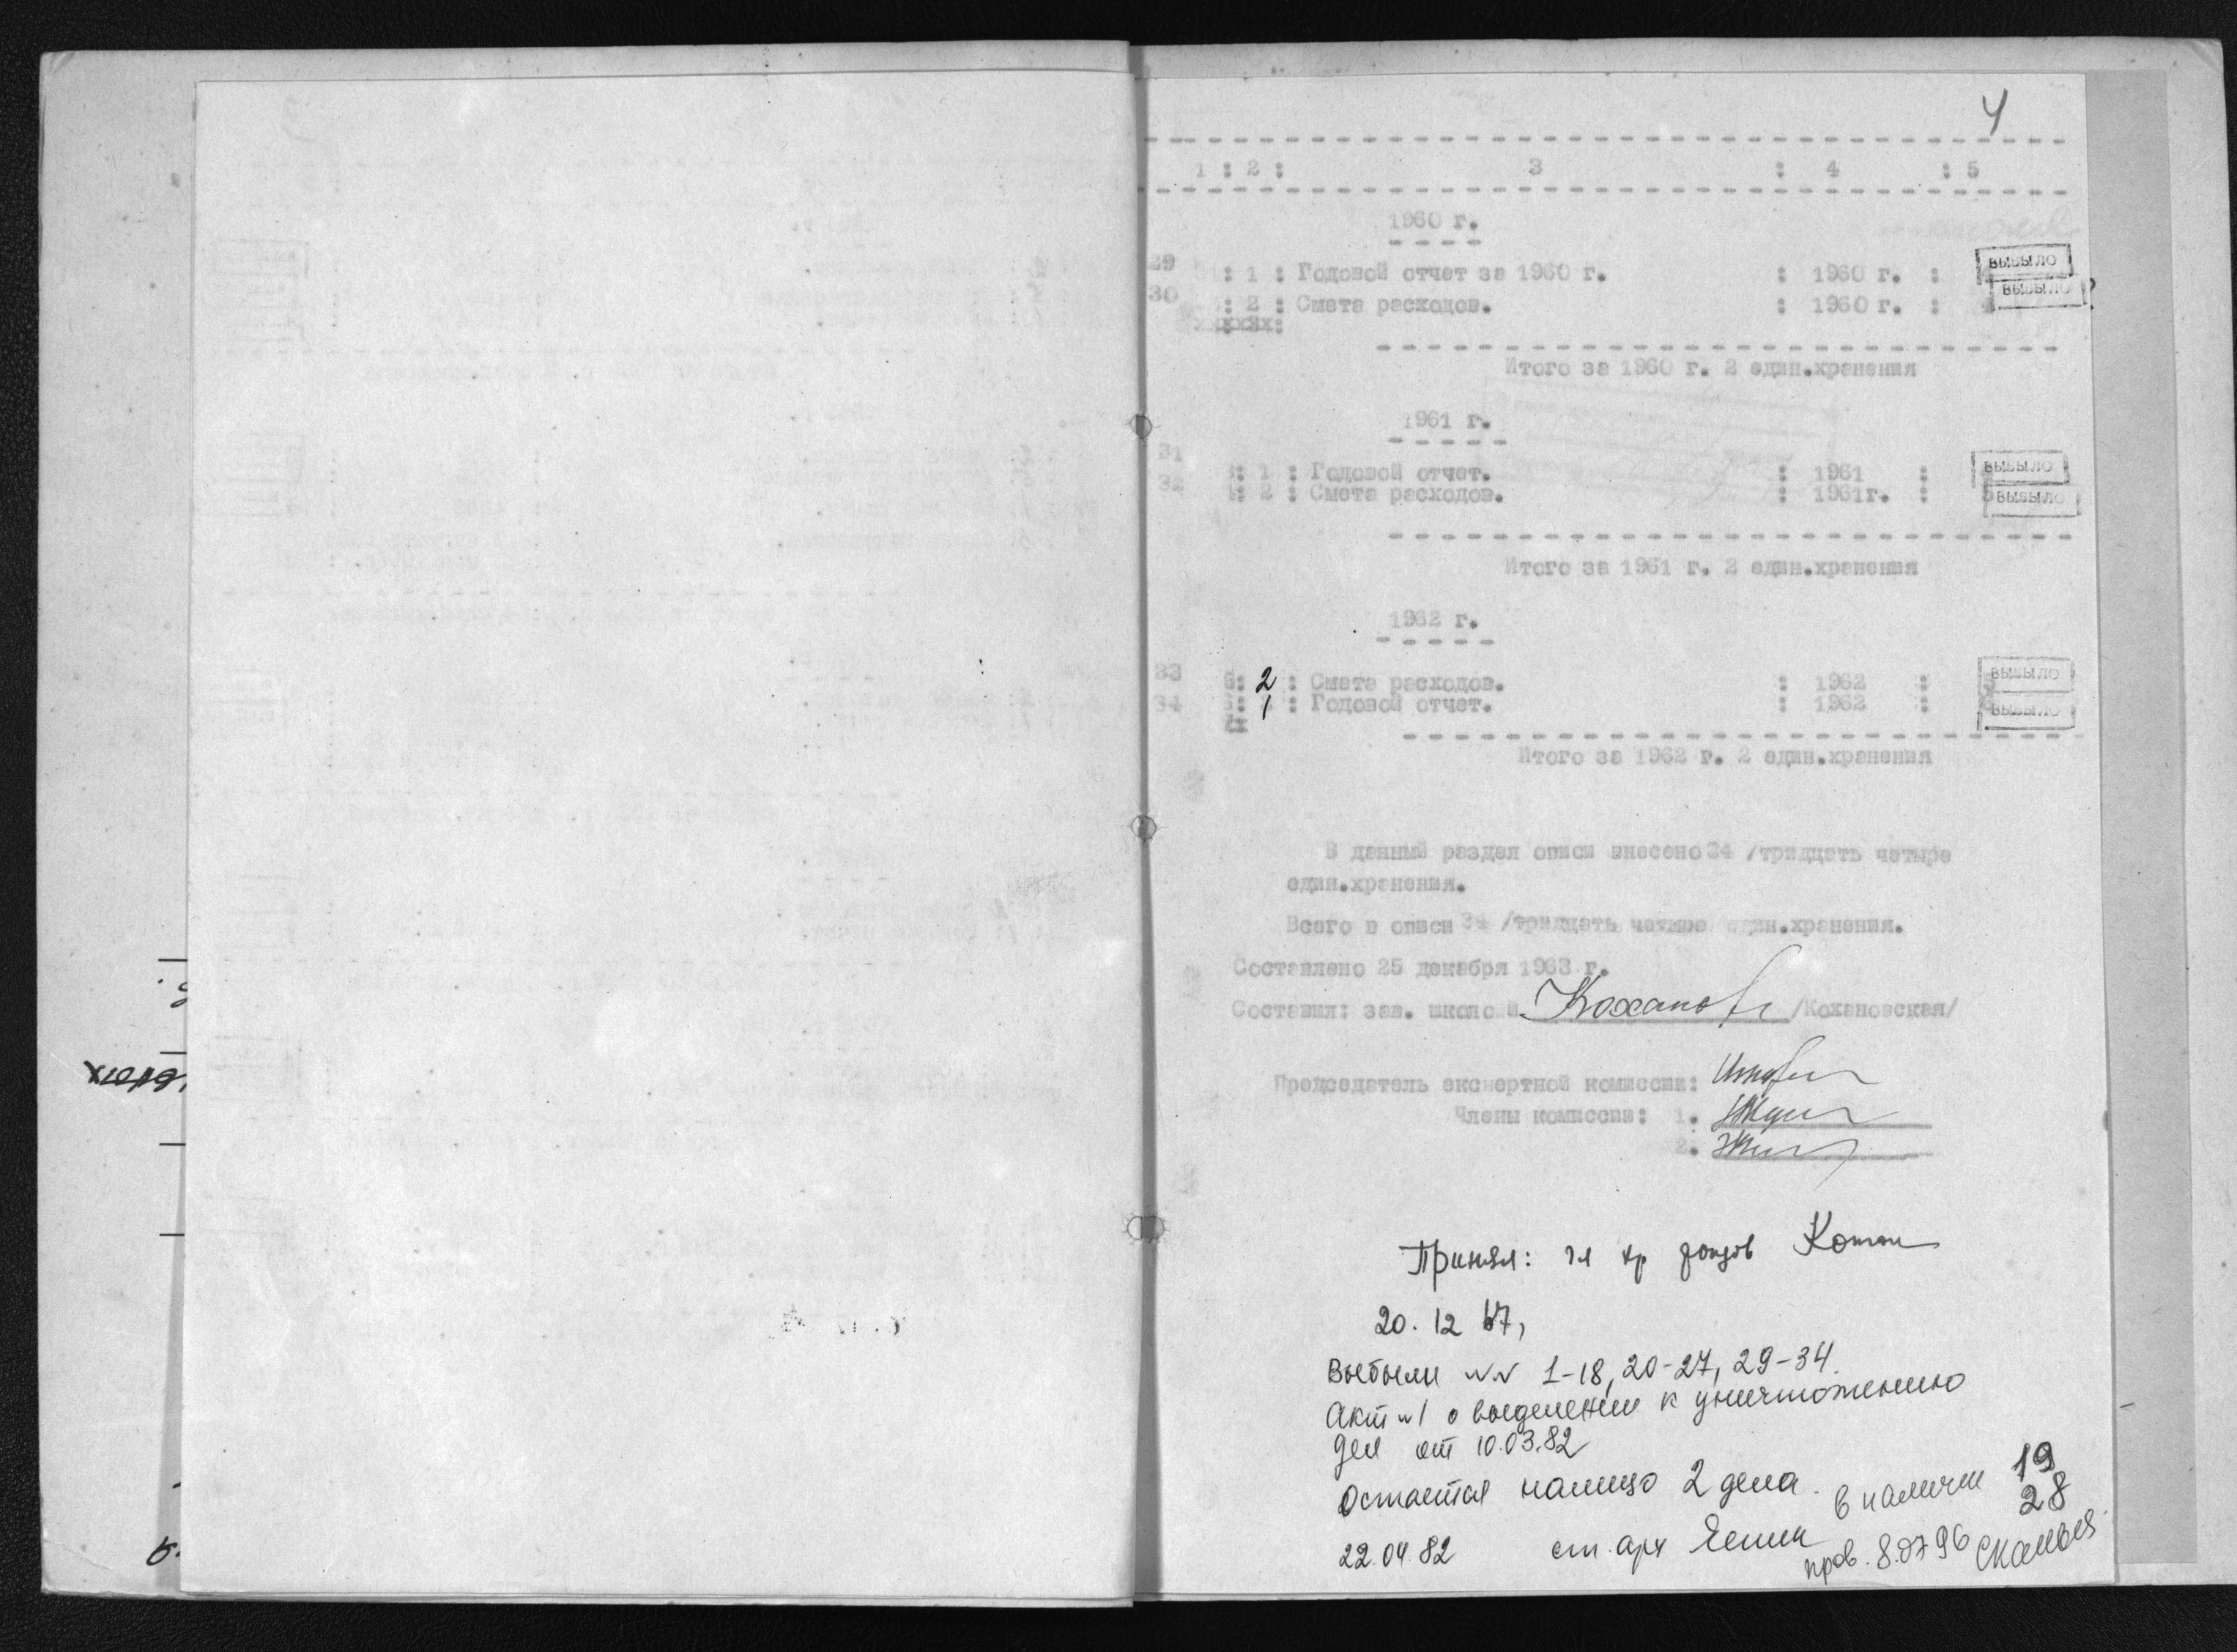 4
1 : 2 : 3 : 4 : 5
1960 г.
29 : 1 : Годовой отчет за 1960 г. : 1960 г. : ВЫБЫЛО
30 : 2 : Смета расходов. : 1960 г. : 4 ВЫБЫЛО
Итого за 1960 г. 2 един.хранения
1961 г.
31 : 1 : Годовой отчет. : 1961 : ВЫБЫЛО
32 : 2 : Смета расходов. : 1961г. : 5 ВЫБЫЛО
Итого за 1961 г. 2 един.хранения
1962 г.
33 : 2 : Смета расходов. : 1962 : ВЫБЫЛО
34 : 1 : Годовой отчет. : 1962 : ВЫБЫЛО
Итого за 1962 г. 2 един.хранения
В данный раздел описи внесено 34 /тридцать четыре
един.хранения.
Всего в описи 34 /тридцать четыре един.хранения.
Составлено 25 декабря 1963 г.
Составил: зав. школой /Кохановская/
Председатель експертной комиссии:
Члены комиссии: 1.
2.
Принял: гл хр фондов
20. 12 67,
Выбыли №№ 1-18, 20-27, 29-34.
Акт №1 о выделении к уничтожению
дел от 10.03.82
Остается налицо 2 дела. в наличии 19
28
22.04.82 ст. арх
пров. 8.07 96